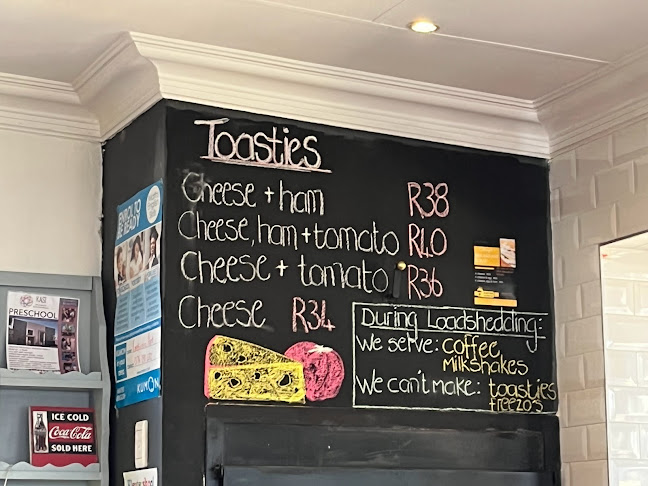 Toasties
Cheese + ham R38
Cheese, ham + tomato R40
Cheese + tomato R36
Cheese R34
During Loadshedding:
We serve: coffee
Milkshakes
We can't make: toasties
freezos
KUMON
PRESCHOOL
ICE COLD
Coca-Cola
SOLD HERE